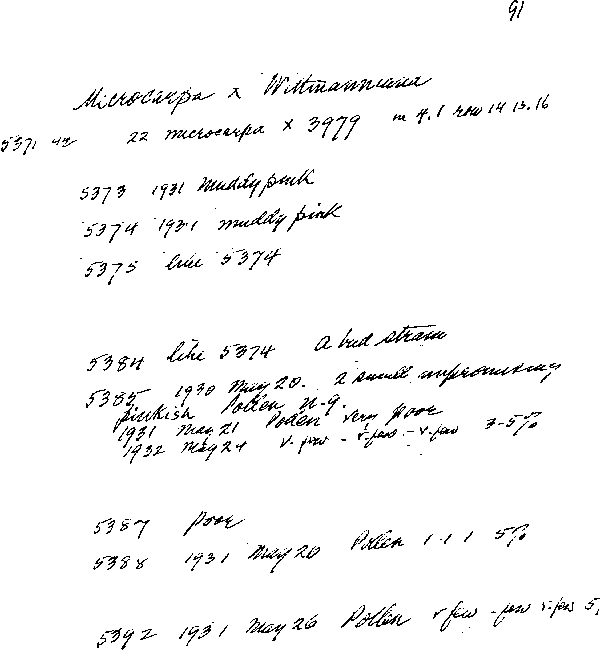 91
Microcarpa x Wittmanniana
5371 42 22 microcarpa x 3979 in 4.1 row 14 15.16
5373 1931 Muddy pink
5374 1931 muddy pink
5375 like 5374
5384 like 5374 A bad strain
5385 1930 May 20. 2 small unpromising
pinkish Pollen N.g.
1931 May 21 Pollen very poor
1932 May 24 v. few - v. few - v. few 3-5%
5387 Poor
5388 1931 May 20 Pollen 1 1 1 5%
5392 1931 May 26 Pollen v few - few v. few 5